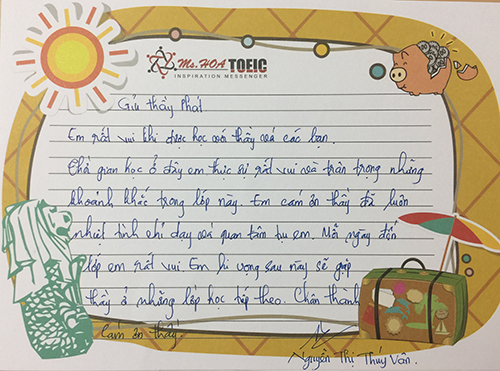 Ms. HOA TOEIC
INSPIRATION MESSENGER
Gửi thầy Phát
Em rất vui khi được học với thầy và các bạn.
Thời gian học ở đây em thực sự rất vui và trân trọng những
khoảnh khắc trong lớp này. Em cảm ơn thầy đã luôn
nhiệt tình chỉ dạy và quan tâm tụi em. Mỗi ngày đến
lớp em rất vui. Em hi vọng sau này sẽ gặp
thầy ở những lớp học tiếp theo. Chân thành
cảm ơn thầy.
Nguyễn Thị Thúy Vân.